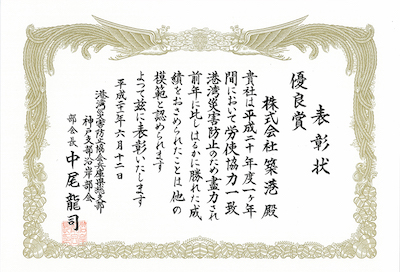 表彰状
優良賞
株式会社 築港 殿
貴社は平成二十年度一ヶ年
間において労使協力一致
港湾災害防止のため盡力され
前年に比しはるかに勝れた成
績をおさめられたことは他の
模範と認められます
よつて茲に表彰いたします
平成二十一年六月十二日
港湾災害防止協会兵庫県総支部
神戸支部沿岸部会
部会長 中尾龍司